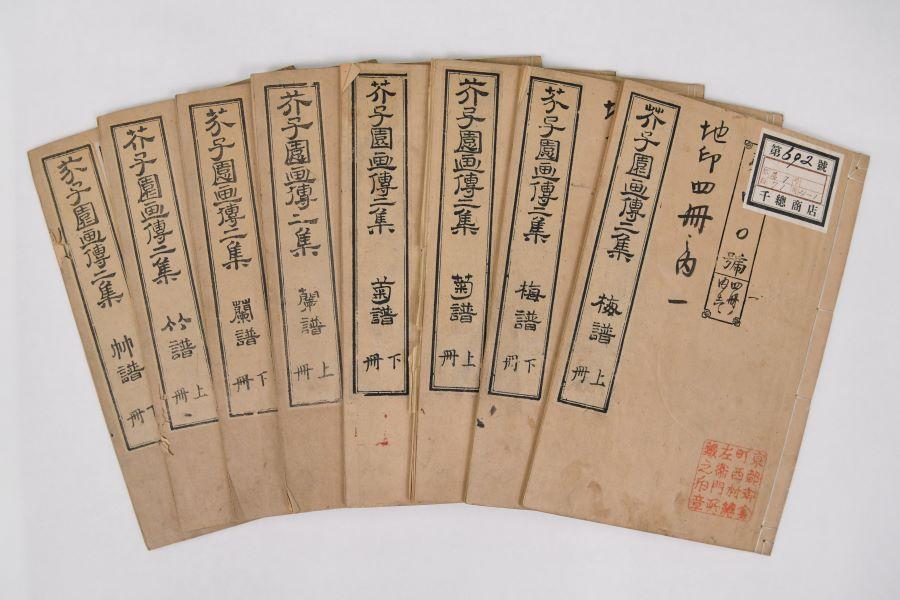 芥子園画傳二集
梅譜
上冊
地印四冊内一
第602號
千總商店
號
四冊
芥子園画傳二集
梅譜
下冊
芥子園画傳二集
菊譜
上冊
芥子園画傳二集
菊譜
下冊
芥子園画傳二集
蘭譜
上冊
芥子園画傳二集
蘭譜
下冊
芥子園画傳二集
竹譜
上冊
芥子園画傳二集
竹譜
下冊